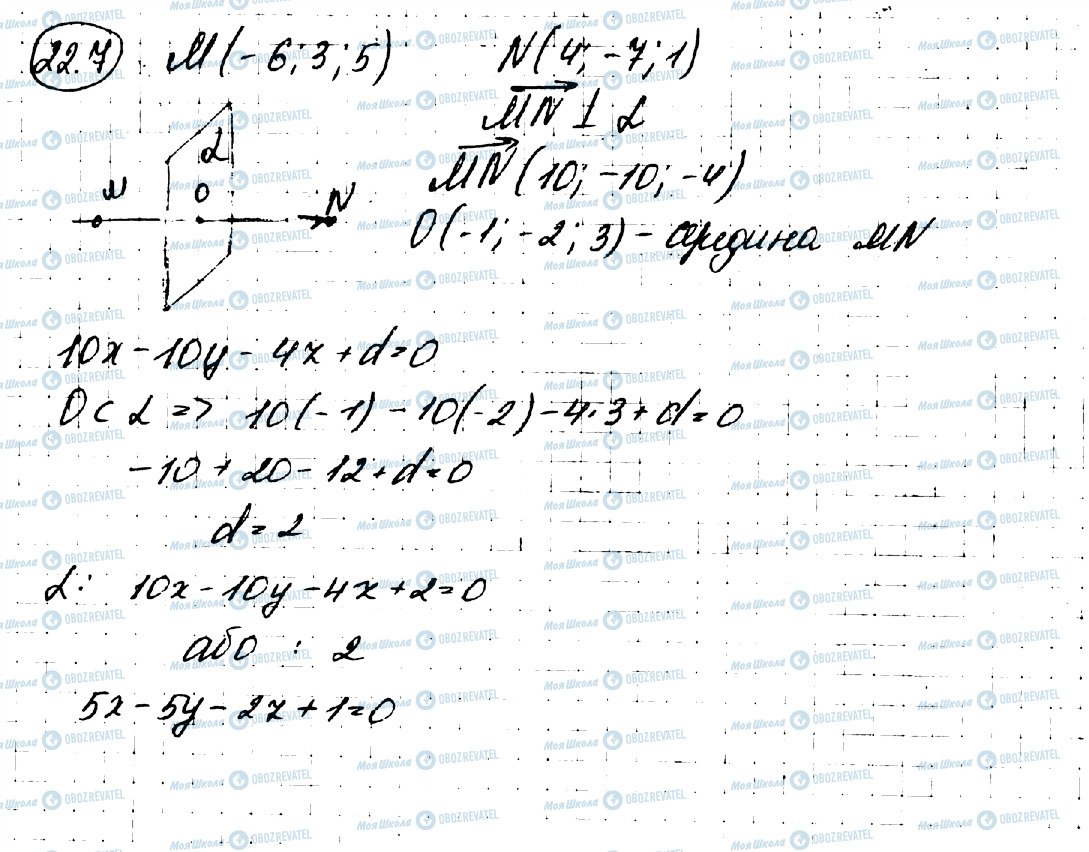 22.7 M(-6; 3; 5) N(4; -7; 1)
MN ⊥ α
MN(10; -10; -4)
O(-1; -2; 3) - середина MN
M α O N
10x - 10y - 4z + d = 0
O ⊂ α => 10(-1) - 10(-2) - 4·3 + d = 0
-10 + 20 - 12 + d = 0
d = 2
α: 10x - 10y - 4z + 2 = 0
або : 2
5x - 5y - 2z + 1 = 0
МояШкола OBOZREVATEL